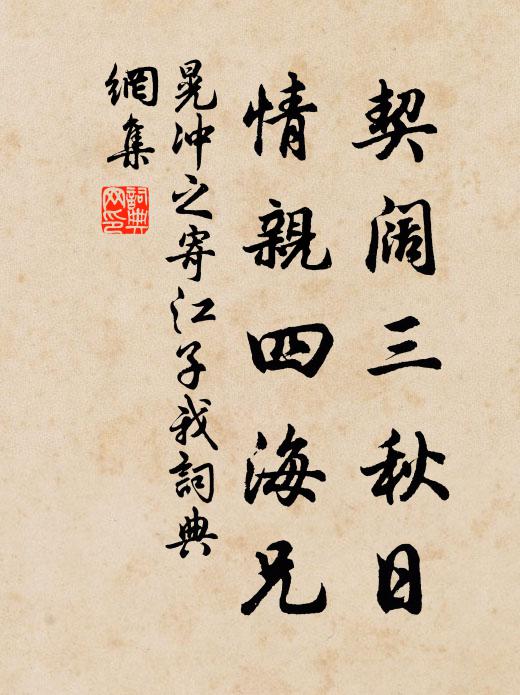 契阔三秋日
情親四海兄
晁冲之寄江子我詞典
網集
詞典網印